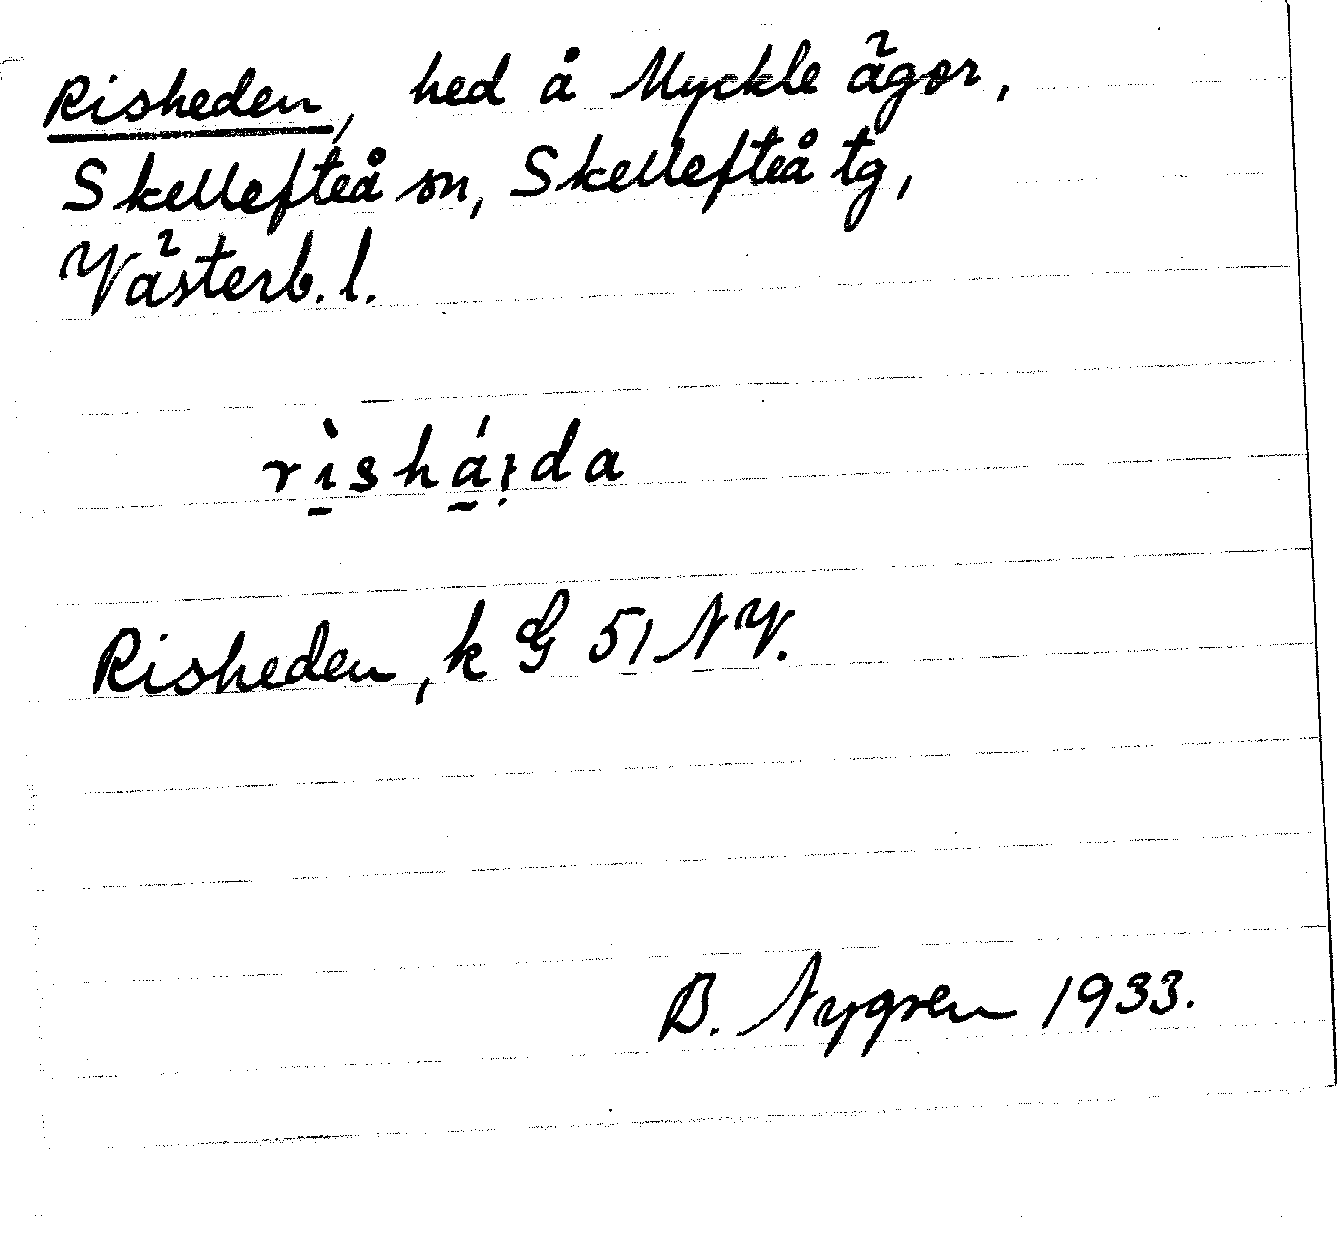 Risheden, hed å Myckle ägor,
Skellefteå sn, Skellefteå tg,
Västerb. l.
rìshá̱ı̣da
Risheden, k G 51 NV.
B. Nygren 1933.